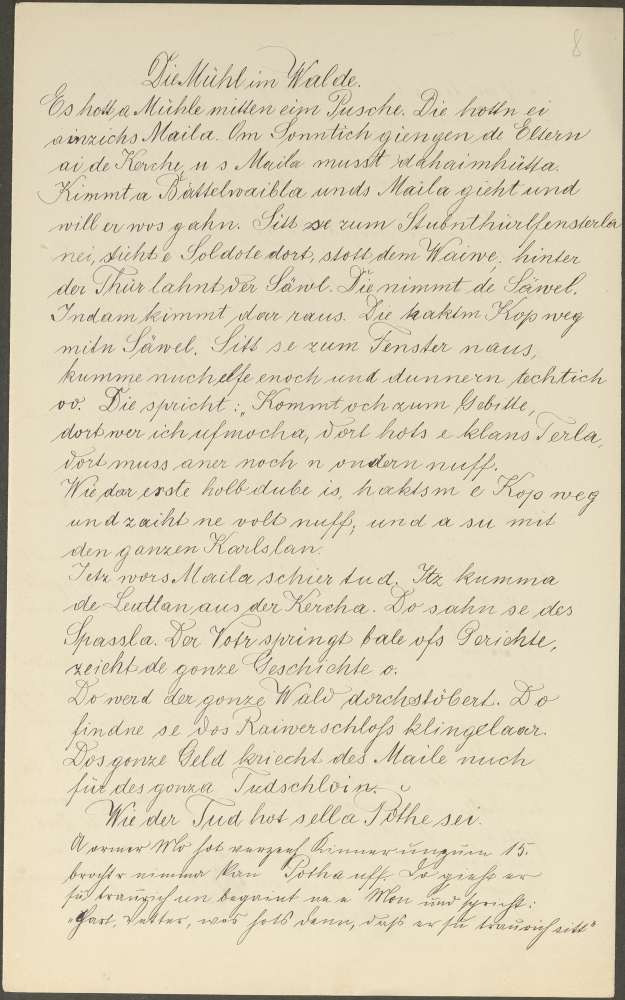 8
Die Mühl im Walde.
Es hott a Mühle mitten eim Pusche. Die hottn ei
ainzichs Maila. Om Sonntich giengen de Eltern
ai de Kerche, u s Maila musst dahaimhütta.
Kimmt a Battelwaibla unds Maila gieht und
will er wos gahn. Sitt se zum Stubnthürlfensterla
nei, sicht e Soldote dort, stott dem Waiwe, hinter
der Thür lahnt der Säwl. Die nimmt de Säwel.
Indam kimmt dar raus. Die haktm Kop weg
mitn Säwel. Sitt se zum Fenster naus,
kumme nuch elfe enoch und dunnern techtich
oo. Die spricht: „Kommt och zum Gebitte,
dort wer ich ufmocha, dort hots e klans Terla,
dort muss aner noch n ondern nuff.
Wie dar erste holb dube is, haktsm e Kop weg
und zaiht ne volt nuff, und a su mit
den ganzen Karlslan.
Jetz wors Maila schier tud. Itz kumma
de Leuttan aus der Kercha. Do sahn se des
Spassla. Der Votr springt bale ofs Gerichte,
zeicht de gonze Geschichte o.
Do werd der gonze Wald dorchstöbert. Do
findne se dos Raiwerschloss klingelaar.
Dos gonze Geld kriecht des Maile nuch
für des gonza Tudschloin.
Wie der Tud hot sella Pothe sei.
A ormer Mo hot verzeh Kinner un zum 15.
brocht'r nimma kan Potha uff. Do gieht er
su traurich un begaint ne e Mon und spricht:
"Hart, Vetter, wos hots denn, dass er su traurich sitt"